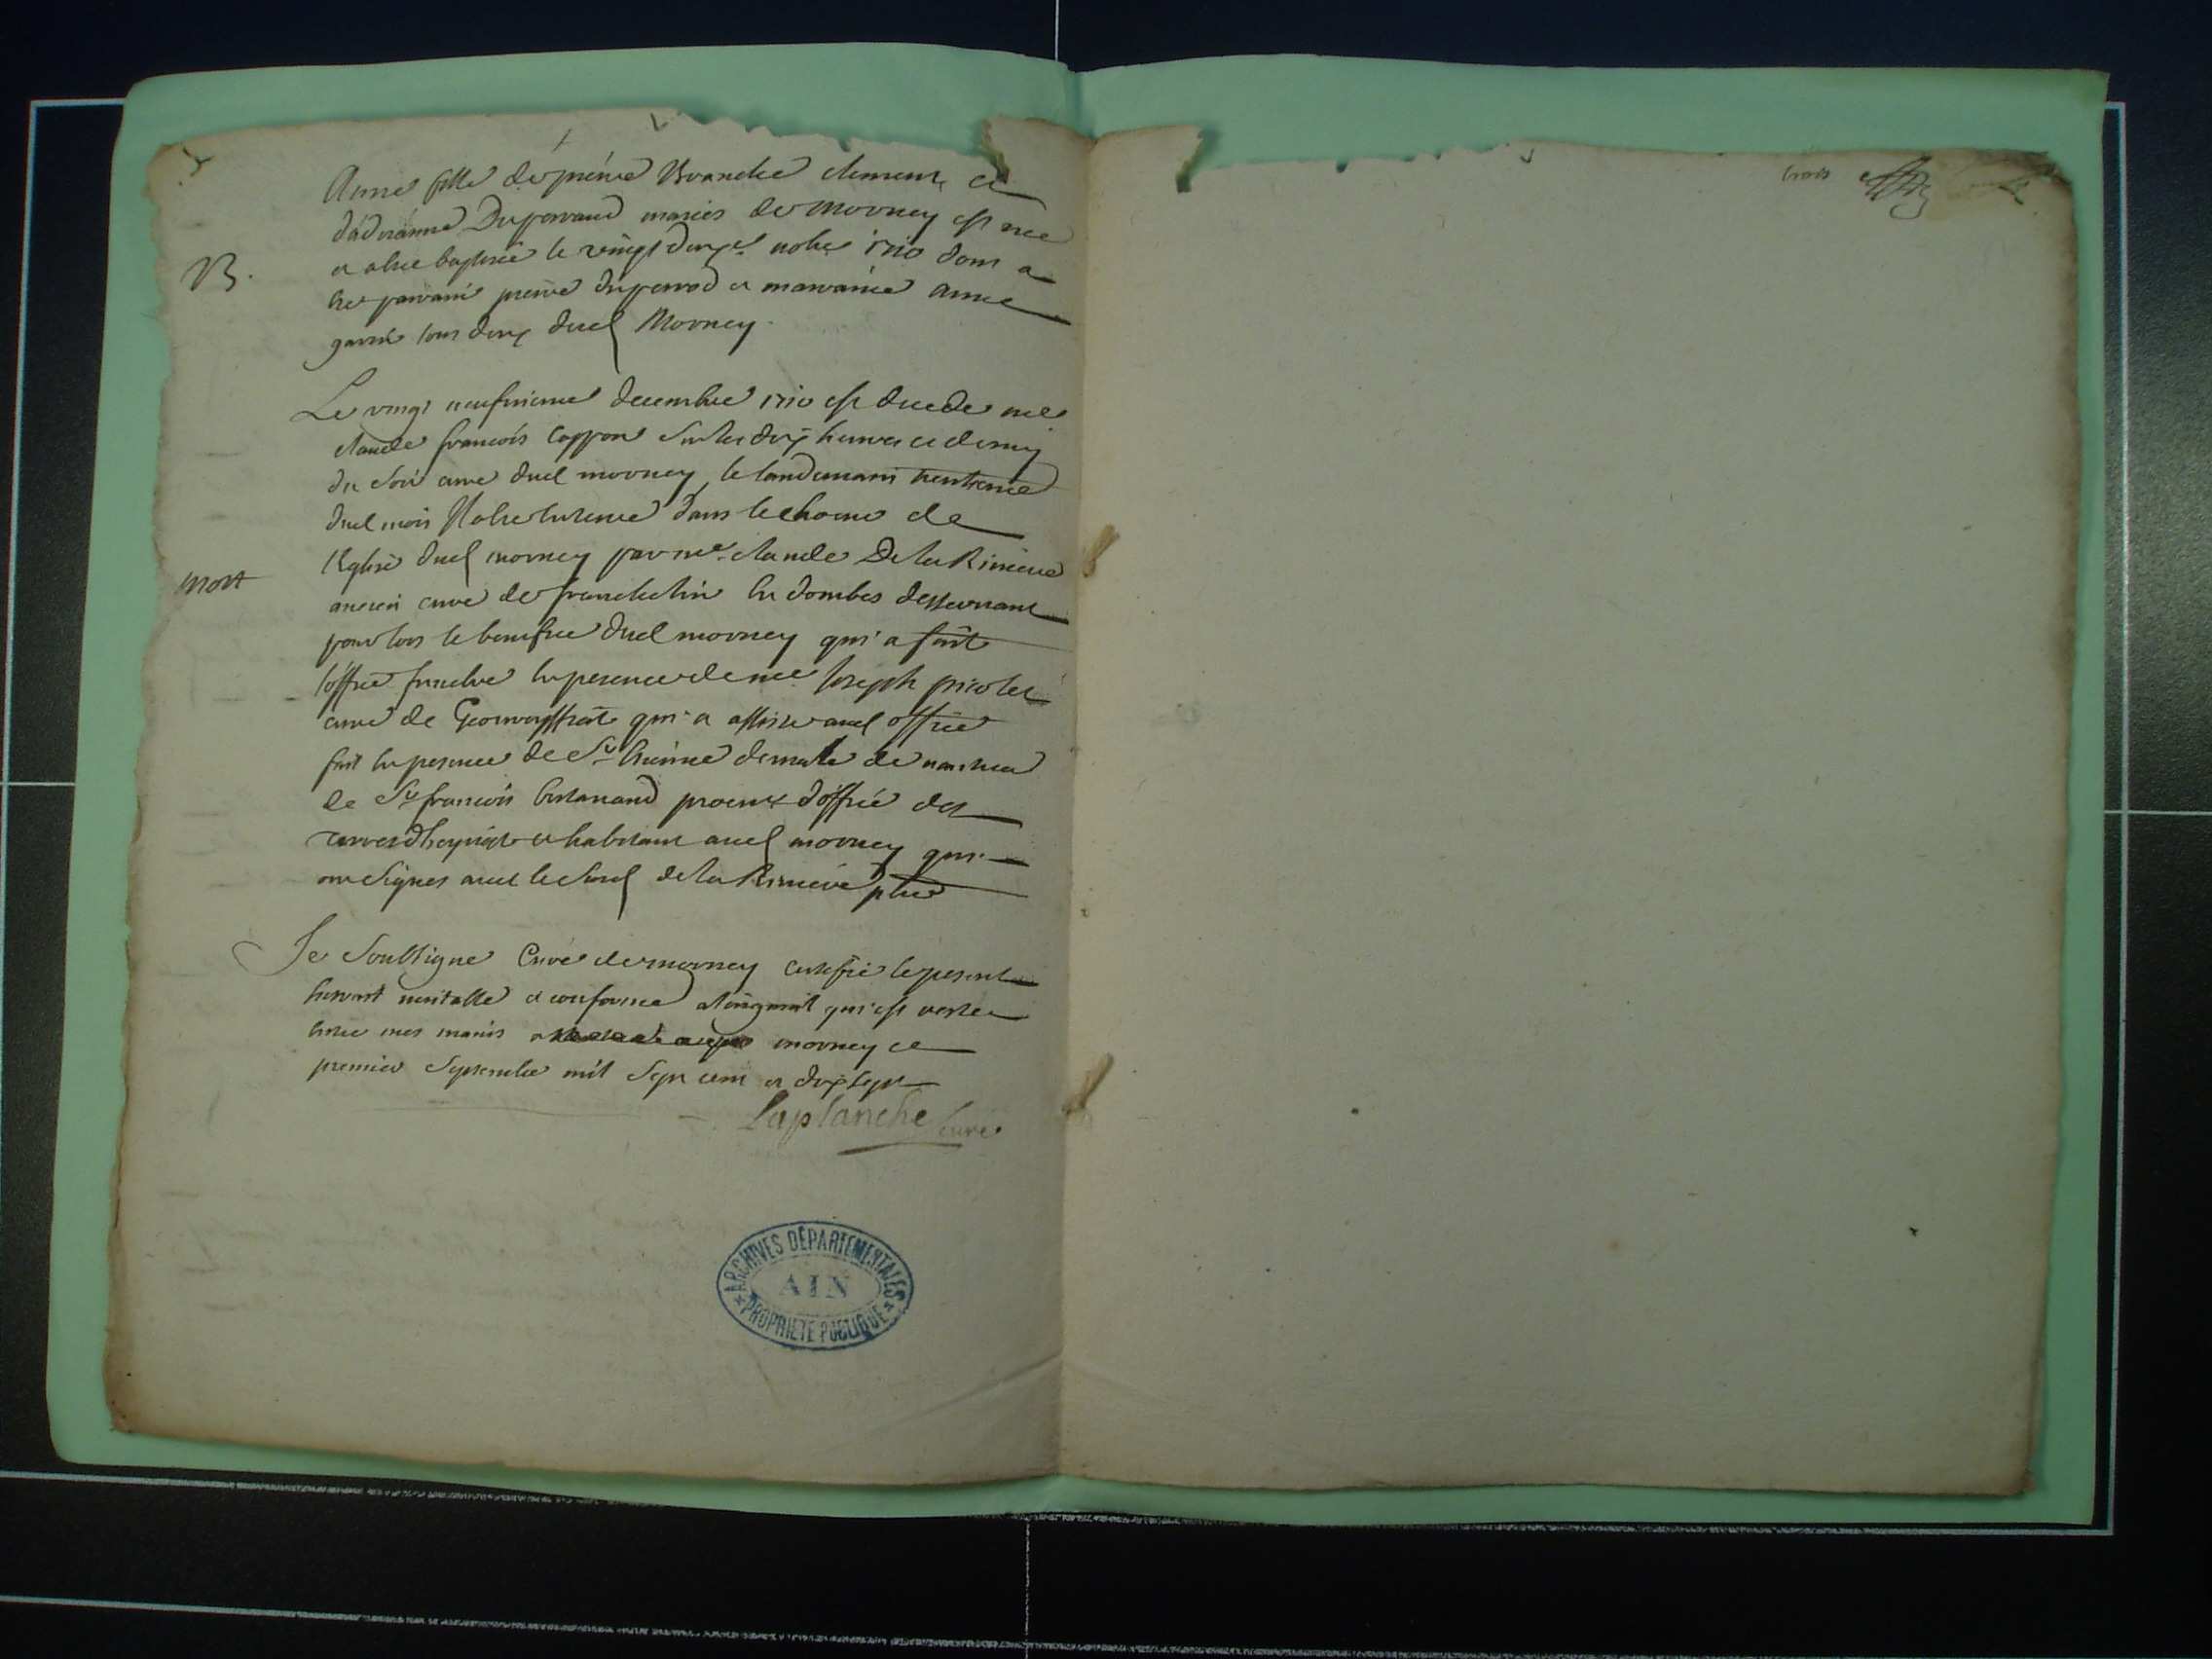 Anne fille de pierre Branche clement et
d'adrianne Duperraud mariés de Mornay est née
B.
et a été baptisée le vingt deux 9bre 1710 dont a
été parrain pierre duperrod et marraine anne
tous deux dud Mornay.
Le vingt neufvieme decembre 1710 est decedé me
claude francois Coppon sur les dix heures et demy
du soir curé dud mornay le landemain trentieme
dud mois dans le choeur de
l'Eglise dud mornay par me claude De la Riviere
mort
ancien curé de francheleins en dombes desservant
pour lors le benefice dud mornay qui a fait
l'office funebre en presence de me Joseph picolet
curé de qui a assisté aud office
fait en presence de Sr de
de Sr francois procur d'office des
terres d'heyriat et habitant aud mornay qui
ont signes avec led de la Riviere ptre
Je Soubsigne Curé de mornay certifie le present
veritable et conforme a loriginal qui est resté
entre mes mains mornay ce
premier Septembre mil Sept cent et dix sept
Laplanche curé
trois
ARCHIVES DÉPARTEMENTALES
AIN
PROPRIÉTÉ PUBLIQUE